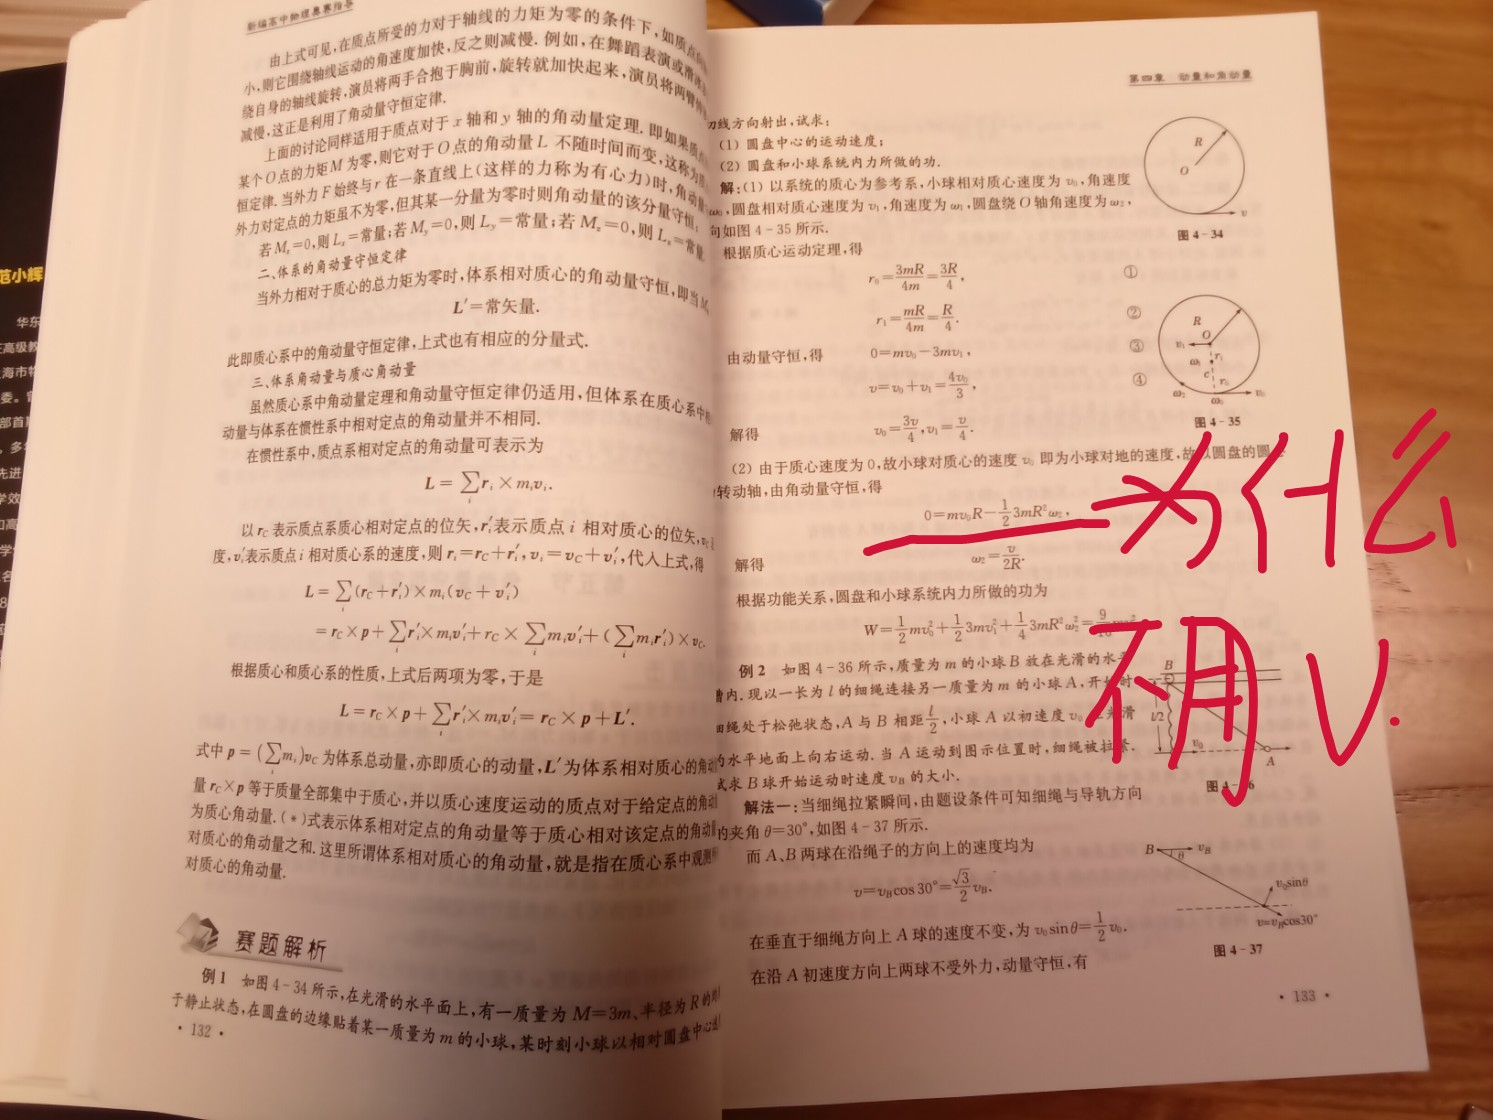 范小辉
华东
新编高中物理奥赛指导
由上式可见,在质点所受的力对于轴线的力矩为零的条件下,如质点
小,则它围绕轴线运动的角速度加快,反之则减慢.例如,在舞蹈表演或滑冰
绕自身的轴线旋转,演员将两手合抱于胸前,旋转就加快起来,演员将两臂
减慢,这正是利用了角动量守恒定律.
上面的讨论同样适用于质点对于 x 轴和 y 轴的角动量定理.即如果质点
某个O点的力矩M 为零,则它对于O点的角动量 L 不随时间而变,这称为
恒定律.当外力 F 始终与 r 在一条直线上(这样的力称为有心力)时,角动量
外力对定点的力矩虽不为零,但其某一分量为零时则角动量的该分量守恒:
若 Mₓ=0,则 Lₓ=常量;若 M_y=0,则 L_y=常量;若 M_z=0,则 L_z=常量
二、体系的角动量守恒定律
当外力相对于质心的总力矩为零时,体系相对质心的角动量守恒,即当
L′=常矢量.
此即质心系中的角动量守恒定律,上式也有相应的分量式.
三、体系角动量与质心角动量
虽然质心系中角动量定理和角动量守恒定律仍适用,但体系在质心系中
动量与体系在惯性系中相对定点的角动量并不相同.
在惯性系中,质点系相对定点的角动量可表示为
L=∑ᵢrᵢ×mᵢvᵢ.
以 r_C 表示质点系质心相对定点的位矢,rᵢ′表示质点 i 相对质心的位矢,
度,vᵢ′表示质点 i 相对质心系的速度,则 rᵢ=r_C+rᵢ′,vᵢ=v_C+vᵢ′,代入上式,得
L=∑ᵢ(r_C+rᵢ′)×mᵢ(v_C+vᵢ′)
=r_C×p+∑ᵢrᵢ′×mᵢvᵢ′+r_C×∑ᵢmᵢvᵢ′+(∑ᵢmᵢrᵢ′)×v_C.
根据质心和质心系的性质,上式后两项为零,于是
L=r_C×p+∑ᵢrᵢ′×mᵢvᵢ′=r_C×p+L′.
式中 p=(∑ᵢmᵢ)v_C 为体系总动量,亦即质心的动量,L′为体系相对质心的角动
量 r_C×p 等于质量全部集中于质心,并以质心速度运动的质点对于给定点的角动
为质心角动量.(*)式表示体系相对定点的角动量等于质心相对该定点的角动量
对质心的角动量之和.这里所谓体系相对质心的角动量,就是指在质心系中观测
对质心的角动量.
赛题解析
例1 如图 4-34 所示,在光滑的水平面上,有一质量为 M=3m、半径为 R 的
于静止状态,在圆盘的边缘贴着某一质量为 m 的小球,某时刻小球以相对圆盘中心
· 132 ·
第四章 动量和角动量
切线方向射出,试求:
(1) 圆盘中心的运动速度;
(2) 圆盘和小球系统内力所做的功.
解:(1) 以系统的质心为参考系,小球相对质心速度为 v₀,角速度
ω₀,圆盘相对质心速度为 v₁,角速度为 ω₁,圆盘绕 O 轴角速度为 ω₂,
向如图 4-35 所示.
根据质心运动定理,得
r₀=3mR/4m=3R/4, ①
r₁=mR/4m=R/4. ②
由动量守恒,得 0=mv₀-3mv₁, ③
v=v₀+v₁=4v₀/3, ④
解得 v₀=3v/4,v₁=v/4.
R
O
v
图 4-34
R
O
v₁
r₁
ω₁
c
r₀
ω₂
ω₀
v₀
图 4-35
(2) 由于质心速度为 0,故小球对质心的速度 v₀ 即为小球对地的速度,故以圆盘的圆
转动轴,由角动量守恒,得
0=mv₀R-1/2 3mR²ω₂,
解得 ω₂=v/2R.
为什么
不用V.
根据功能关系,圆盘和小球系统内力所做的功为
W=1/2 mv₀²+1/2 3mv₁²+1/4 3mR²ω₂²=9
例2 如图 4-36 所示,质量为 m 的小球 B 放在光滑的水
槽内.现以一长为 l 的细绳连接另一质量为 m 的小球 A,开始时
细绳处于松弛状态,A 与 B 相距 l/2,小球 A 以初速度 v₀ 光滑
的水平地面上向右运动.当 A 运动到图示位置时,细绳被拉紧.
试求 B 球开始运动时速度 v_B 的大小.
B
l/2
v₀
A
解法一:当细绳拉紧瞬间,由题设条件可知细绳与导轨方向
的夹角 θ=30°,如图 4-37 所示.
而 A、B 两球在沿绳子的方向上的速度均为
v=v_B cos 30°=√3/2 v_B.
在垂直于细绳方向上 A 球的速度不变,为 v₀ sin θ=1/2 v₀.
在沿 A 初速度方向上两球不受外力,动量守恒,有
B
θ
v_B
v₀sinθ
v=v_Bcos30°
图 4-37
· 133 ·